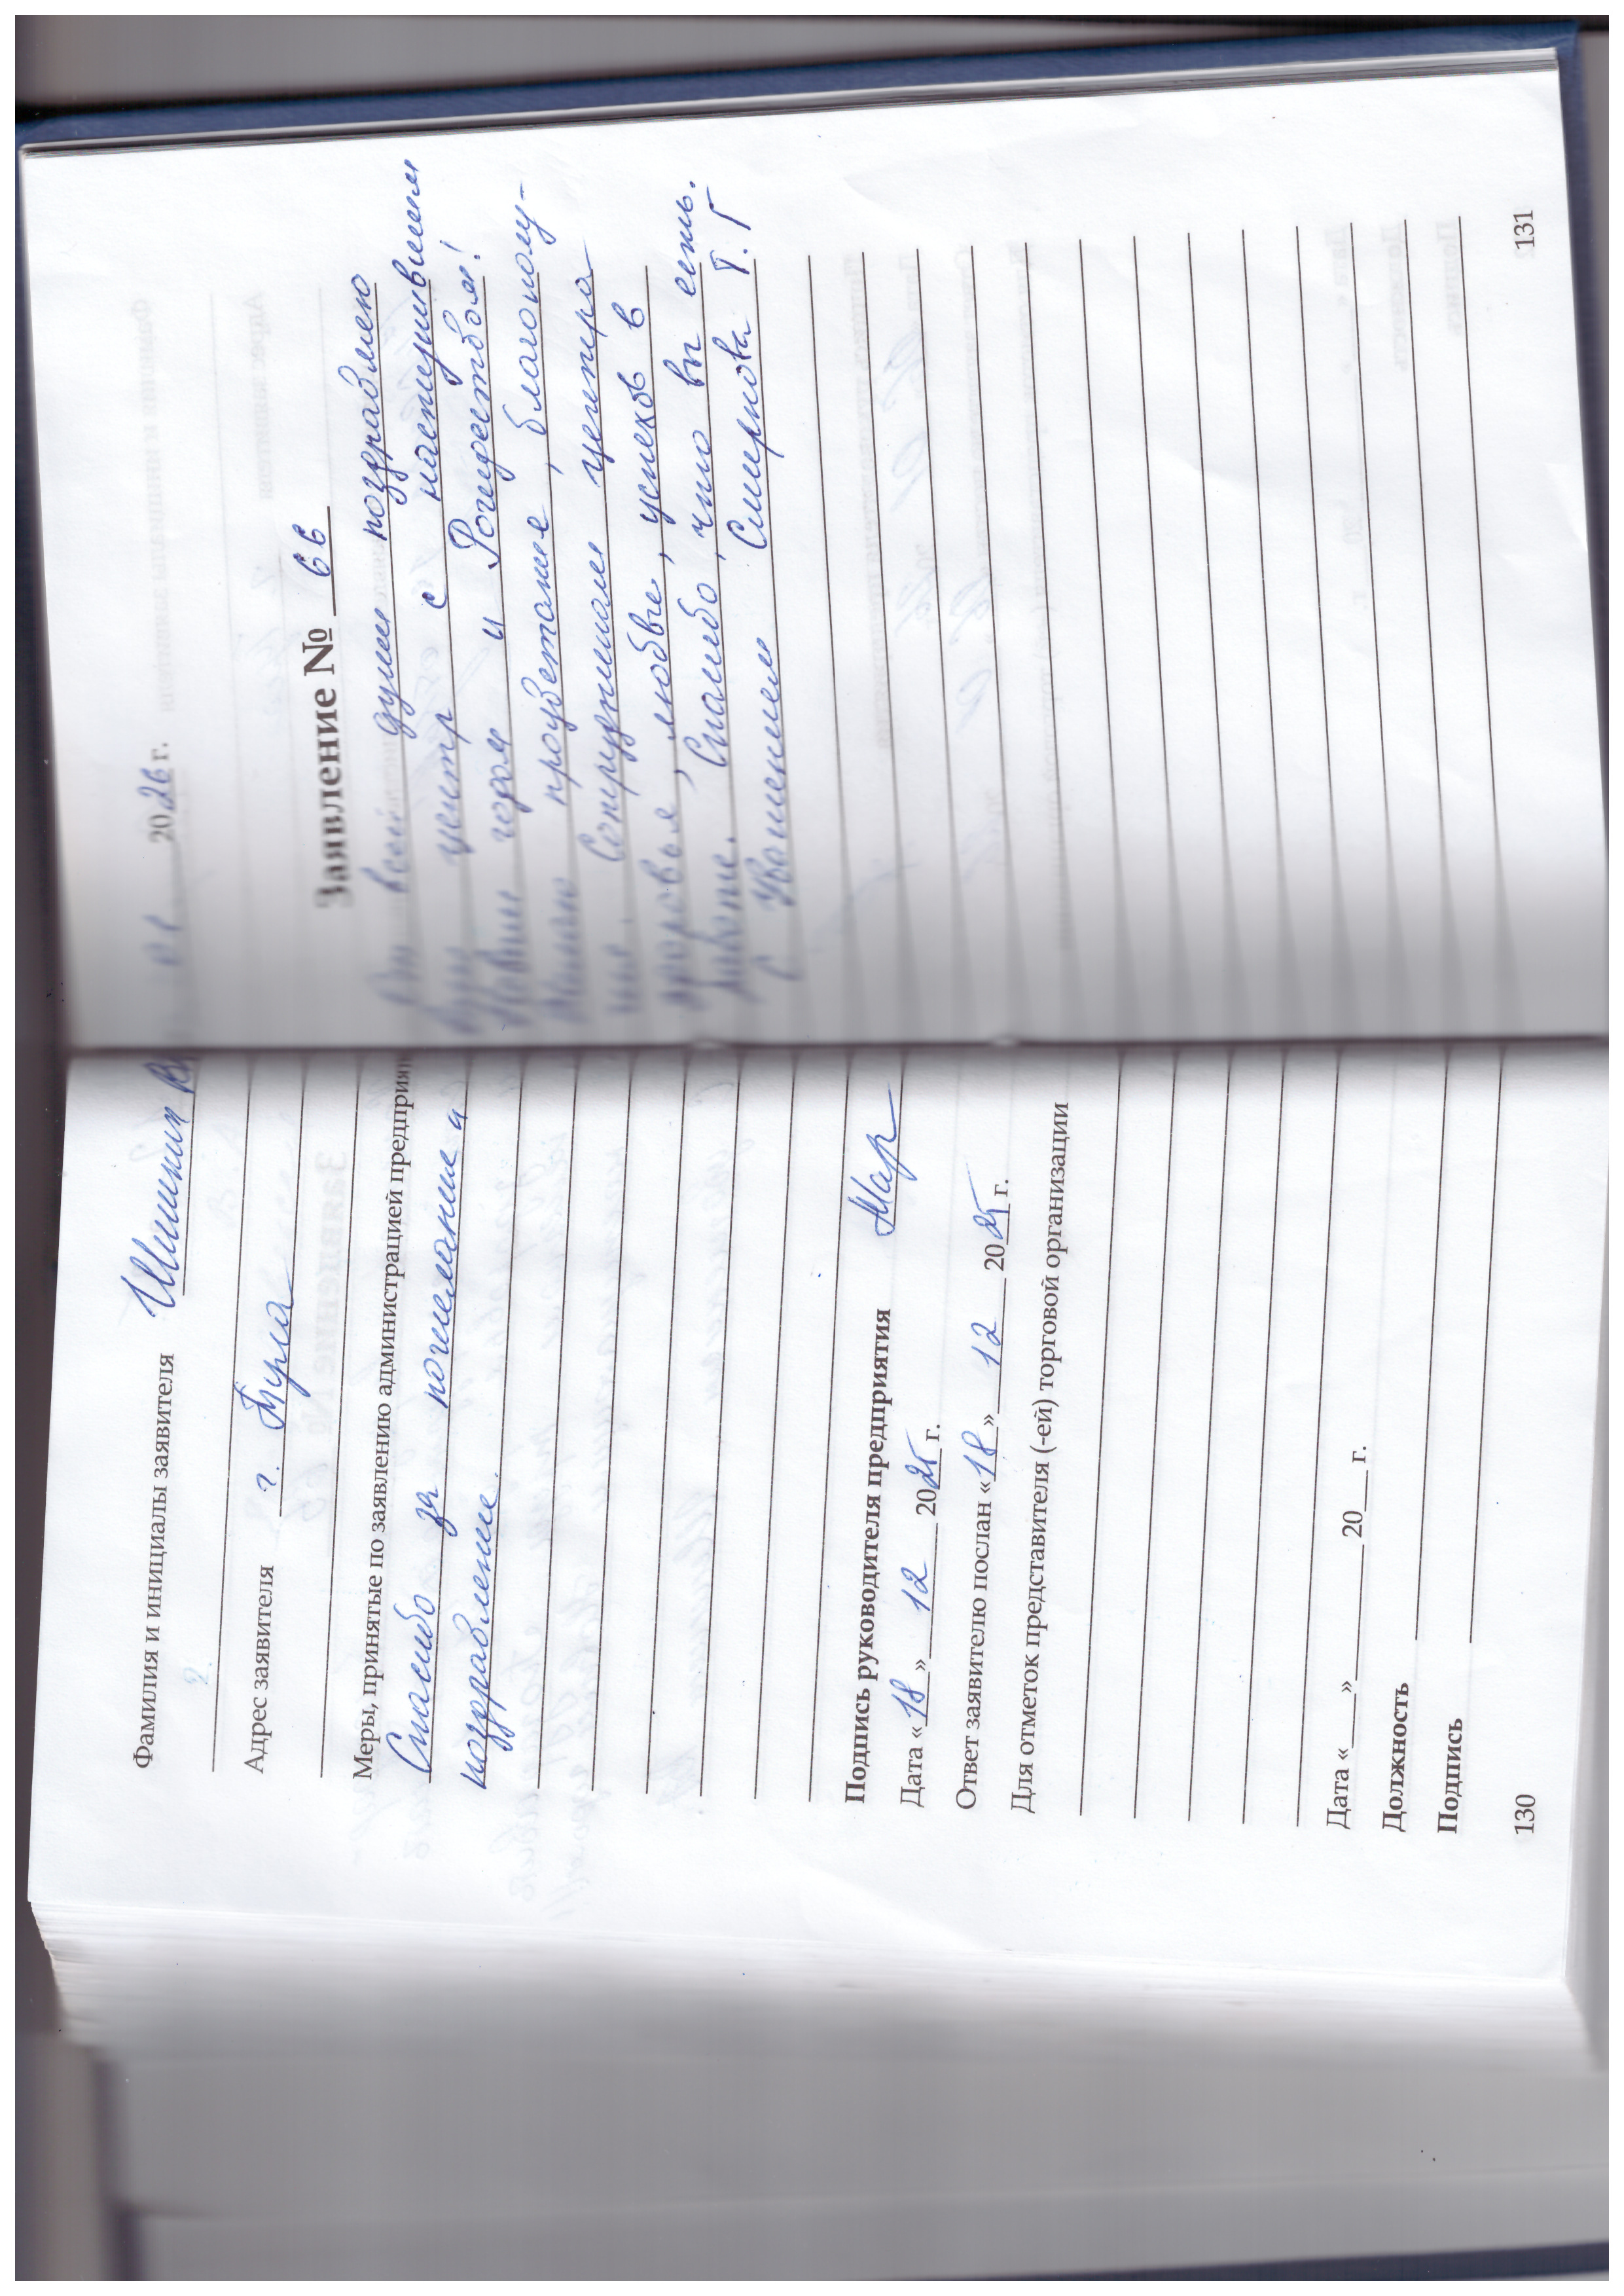 Фамилия и инициалы заявителя Шишкин В
Адрес заявителя г. Тула
Меры, принятые по заявлению администрацией предприя
Спасибо за пожелание и
поздравление.
Подпись руководителя предприятия Мар
Дата «18» 12 2025 г.
Ответ заявителю послан «18» 12 2025 г.
Для отметок представителя (-ей) торговой организации
Дата «___» ______ 20__ г.
Должность
Подпись
130
2026 г.
Заявление № 66
От всей души поздравляю
Ваш центр с наступившим
Новым годом и Рождеством!
Желаю процветание, благополу-
чие. Сотрудникам центра
здоровья, любви, успехов в
работе. Спасибо, что вы есть.
С уважением Смирнова Т. Г
131